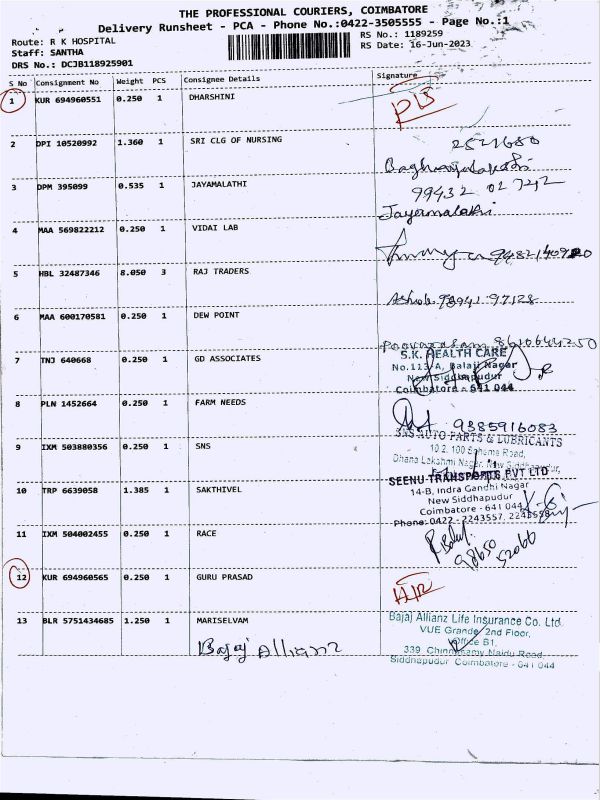 THE PROFESSIONAL COURIERS, COIMBATORE
Delivery Runsheet - PCA - Phone No.:0422-3505555 - Page No.:1
Route: R K HOSPITAL
RS No.: 1189259
Staff: SANTHA
RS Date: 16-Jun-2023
DRS No.: DCJB118925901
S No Consignment No Weight PCS Consignee Details Signature
1 KUR 694960551 0.250 1 DHARSHINI
2 DPI 10520992 1.360 1 SRI CLG OF NURSING
2521680
3 DPM 395099 0.535 1 JAYAMALATHI
99432 02742
Jayamalathi
4 MAA 569822212 0.250 1 VIDAI LAB
5 HBL 32487346 8.050 3 RAJ TRADERS
Ashok 98941 97128
6 MAA 600170581 0.250 1 DEW POINT
8610644250
7 TNJ 640668 0.250 1 GD ASSOCIATES
S.K. HEALTH CARE
No.113-A, Balaji Nagar
New Siddhapudur
Coimbatore - 641 044
8 PLN 1452664 0.250 1 FARM NEEDS
9385916083
9 IXM 503880356 0.250 1 SNS
SNS AUTO PARTS & LUBRICANTS
10.2, 100 Scheme Road,
Dhana Lakshmi Nagar, New Siddhapudur,
10 TRP 6639058 1.385 1 SAKTHIVEL
SEENU TRANSPORTS PVT LTD
14-B, Indra Gandhi Nagar
New Siddhapudur
Coimbatore - 641 044
Phone: 0422 - 2243557, 2243558
11 IXM 504002455 0.250 1 RACE
98650
52066
12 KUR 694960565 0.250 1 GURU PRASAD
13 BLR 5751434685 1.250 1 MARISELVAM
Bajaj Allianz
Bajaj Allianz Life Insurance Co. Ltd.
VUE Grande, 2nd Floor,
Office B1,
339 Chinnasamy Naidu Road,
Siddhapudur Coimbatore - 641 044